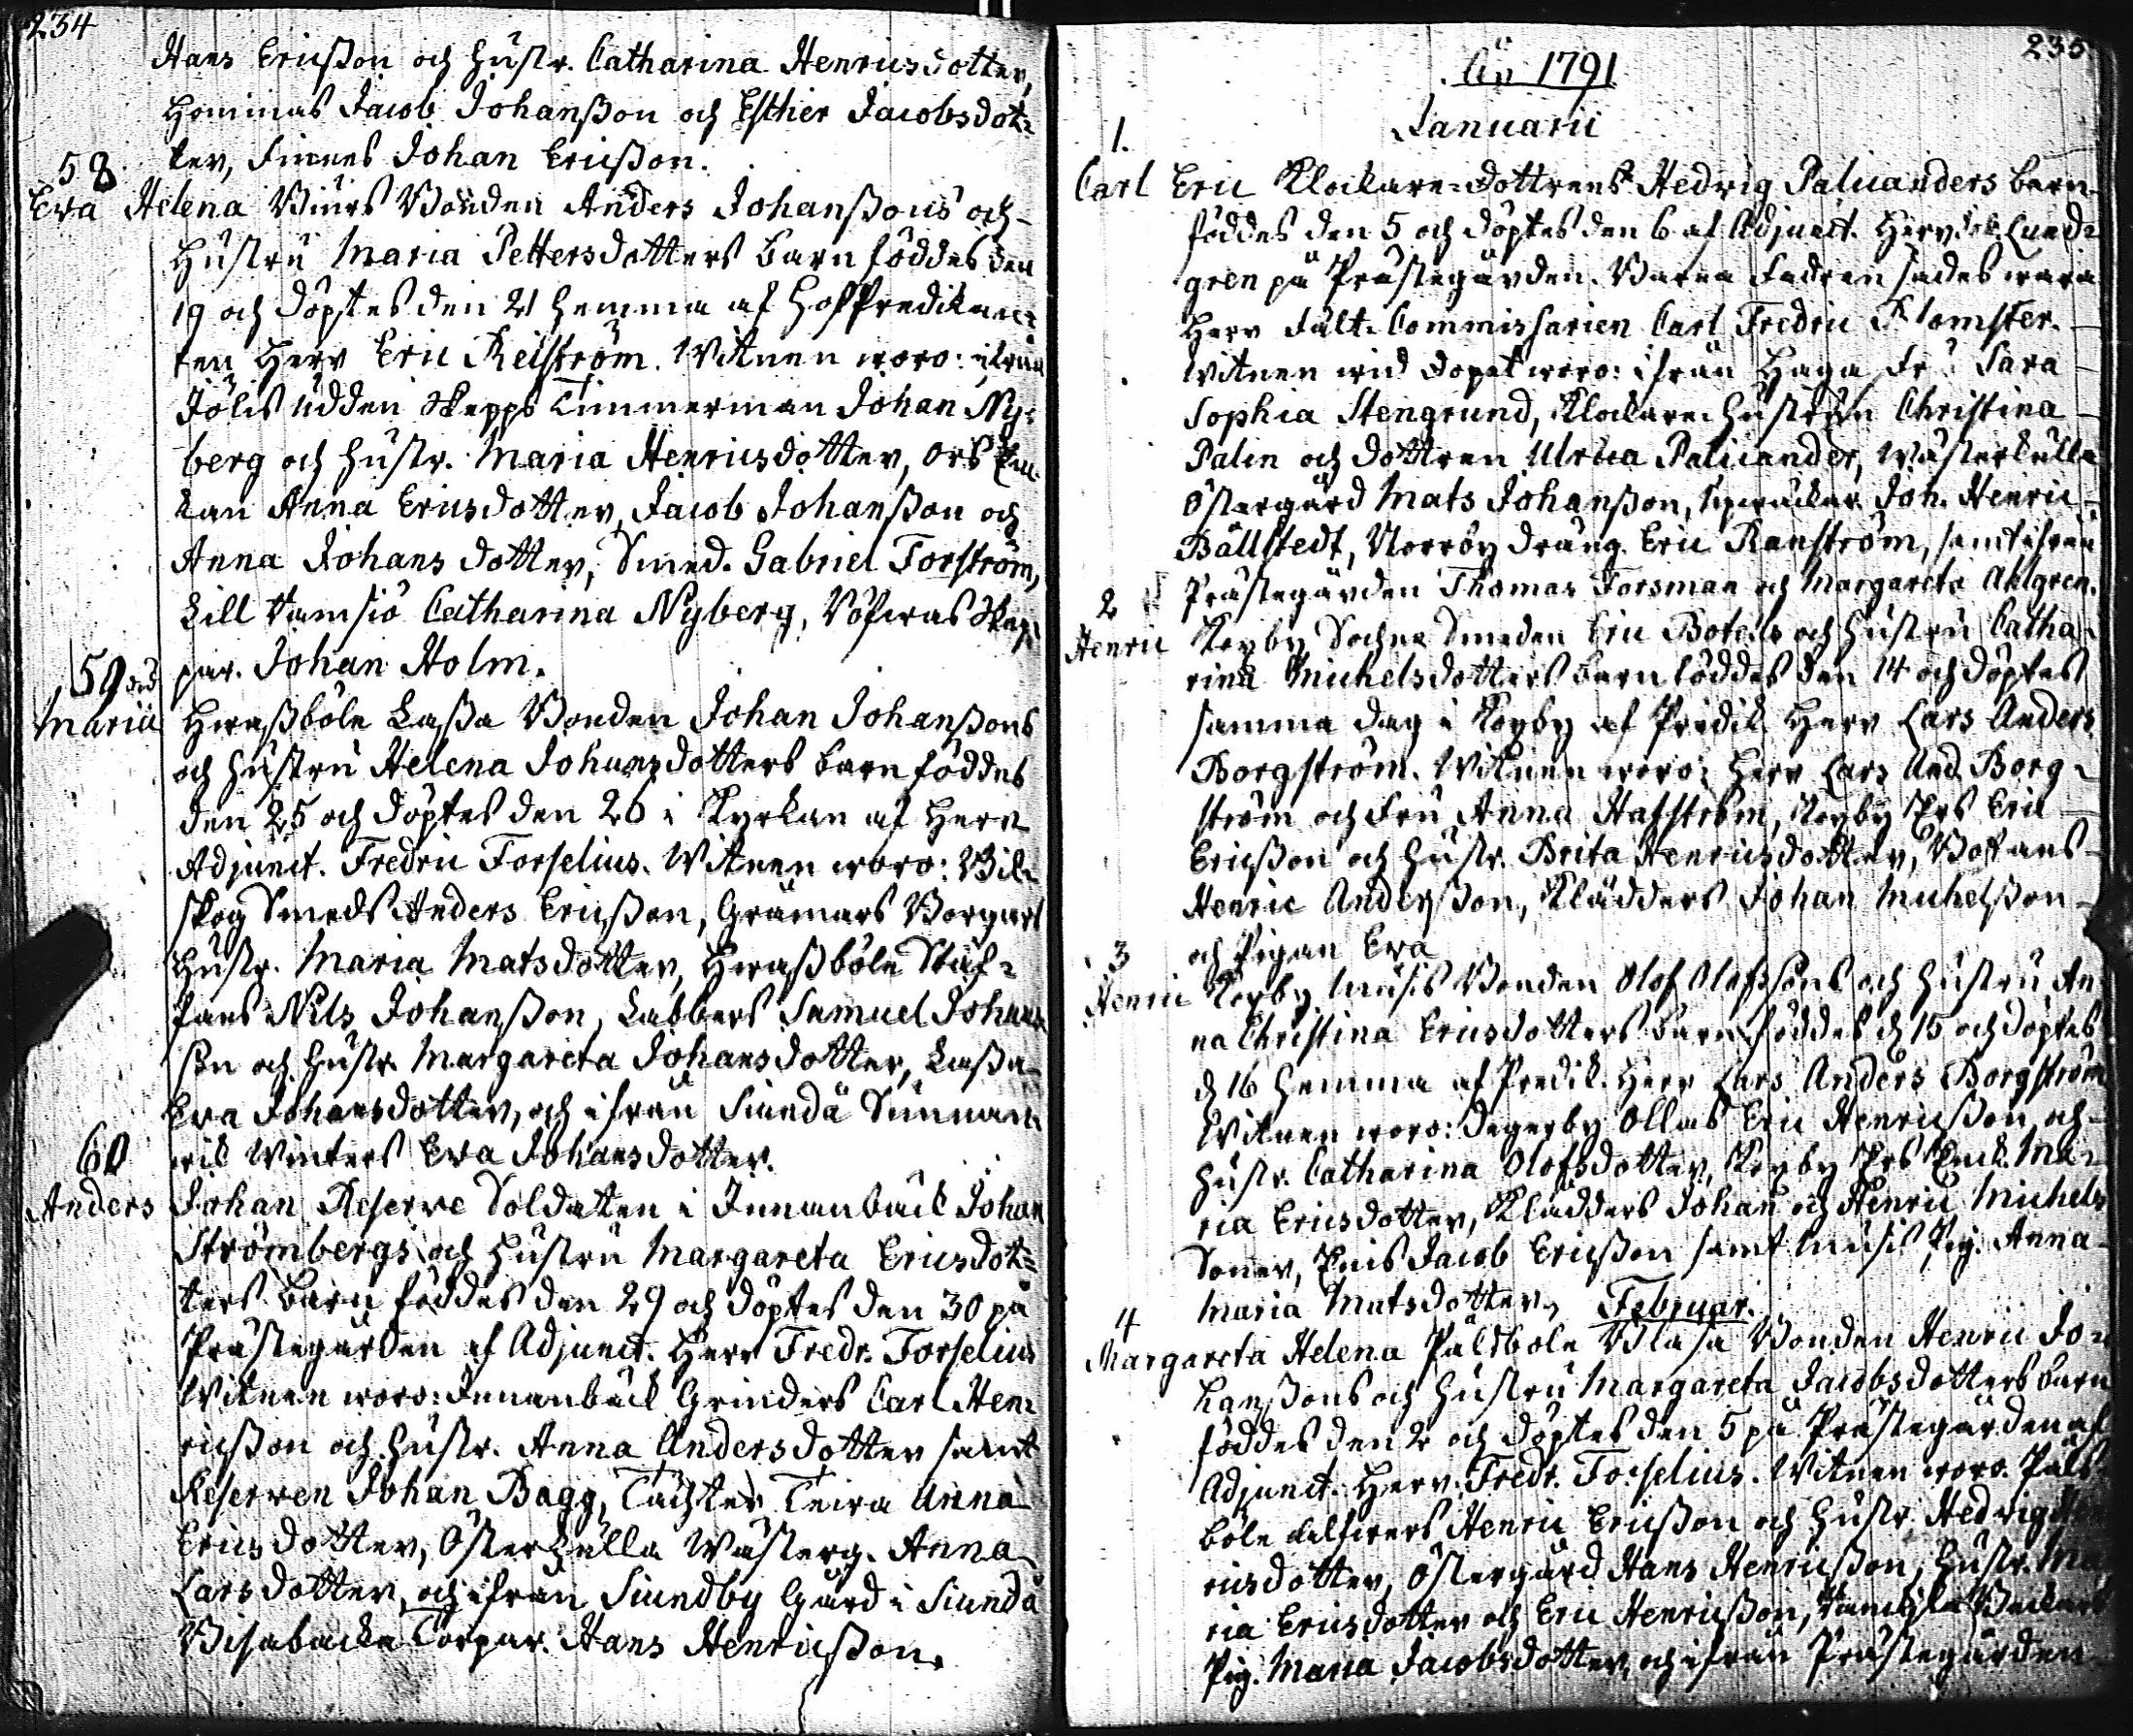 234
Hans Ericßon och hustr. Catharina Henricsdotter,
Hommas Jacob Johanßon och Esther Jacobsdot=
ter, Finnes Johan Ericßon.
58
Eva Helena Bonden Anders Johanßons och
Hustru Maria Pettersdotters Barn föddes den
19 och döptes den 21 hemma af HofPredikan=
ten Herr Eric Reiström. Witnen woro: ifrån
Udden Skepps Timmerman Johan Ny=
berg och hustr. Maria Henricsdotter,
Anna Ericsdotter, Jacob Johanßon och
Anna Johans dotter, Smed. Gabriel Forström,
Lill Catharina Nyberg, Skep=
par. Johan Holm.
59
Maria Hwaßböle Laßa Bonden Johan Johanßons
och hustru Helena Johansdotters barn föddes
den 25 och döptes den 26 i Kyrkan af Herr
Adjunct. Fredric Forselius. Witnen woro:
skog Smeds Anders Ericßon,
Hustr. Maria Matsdotter, Hwaßböle Staf=
fans Nils Johanßon, Labbers Samuel Johan
son och hustr. Margareta Johansdotter, Laßa
Eva Johansdotter, och ifrån Siundå
Winters Eva Johansdotter.
60
Anders Johan Reserve Soldaten i Innanbäck Johan
Strömbergs och Hustru Margareta Ericsdot=
ters barn föddes den 29 och döptes den 30 på
Prästegården af Adjunct. Herr Fredr. Forselius
Witnen woro: Innanbäck Grinders Carl Hen=
ricßon och hustr. Anna Andersdotter samt
Reserven Johan Bagg, Täckter Anna
Ericsdotter, Österkulla Wästerg. Anna
Larsdotter, och ifrån Siundby Gård i Siundå
Bisabacka Torpar. Hans Henricßon.
235
An 1791
Januarii
1.
Carl Eric Klockare=dottrens Hedvig Palicanders barn
föddes den 5 och döptes den 6 af Adjunct. Herr Lund=
gren på Prästegården. Barna Fadren sades wara
Herr Fält. Commissarien Carl Fredric Blomster.
Witnen wid dopet woro: ifrån Haga Fr: Sara
Sophia Stengrund, Klockare hustrun Christina
Palin och dottren Ulrica Palicander, Wästerkulla
Östergård Mats Johanßon, Joh. Henric
Bällstedt, Norrby dräng. Eric Ranström, samt ifrån
Prästegården Thomas Forsman och Margareta Ahlgren.
2
Henric Köpby Sockne Smeden Eric Botells och hustru Catha
rina Michelsdotters barn föddes den 14 och döptes
samma dag i af Predik. Herr Lars Anders
Borgström. Witnen woro: Herr Lars And. Borg=
ström och Fru Anna Hafström, Eric
Ericßon och hustr. Brita Henricsdotter,
Henric Anderßon, Klädders Johan Michelßon
och Pigan Eva
3
Henric Bonden Olof Olofssons och hustru An
na Christina Ericsdotters barn föddes d. 15 och döptes
d. 16 hemma af Predik. Herr Lars Anders Borgström
Witnen woro: Degerby Ollas Eric Henricßon och
hustr. Catharina Olofsdotter, Enk. Ma=
ria Ericsdotter, Klädders Johan och Henric Michels
Söner, Jacob Ericßon samt Pig. Anna
Maria Matsdotter, Februar.
4
Margareta Helena Påltböle Bonden Henric Jo=
hanßons och hustru Margareta Jacobsdotters barn
föddes den 2 och döptes den 5 på Prästegården af
Adjunct. Herr. Fredr. Forselius. Witnen woro. Pålt
böle Henric Ericßon och hustr. Hedvig Hen
ricsdotter, Östergård Hans Henricßon, hustr. Ma
ria Ericsdotter och Eric Henricßon,
Pig. Maria Jacobsdotter, och ifrån Prästegården